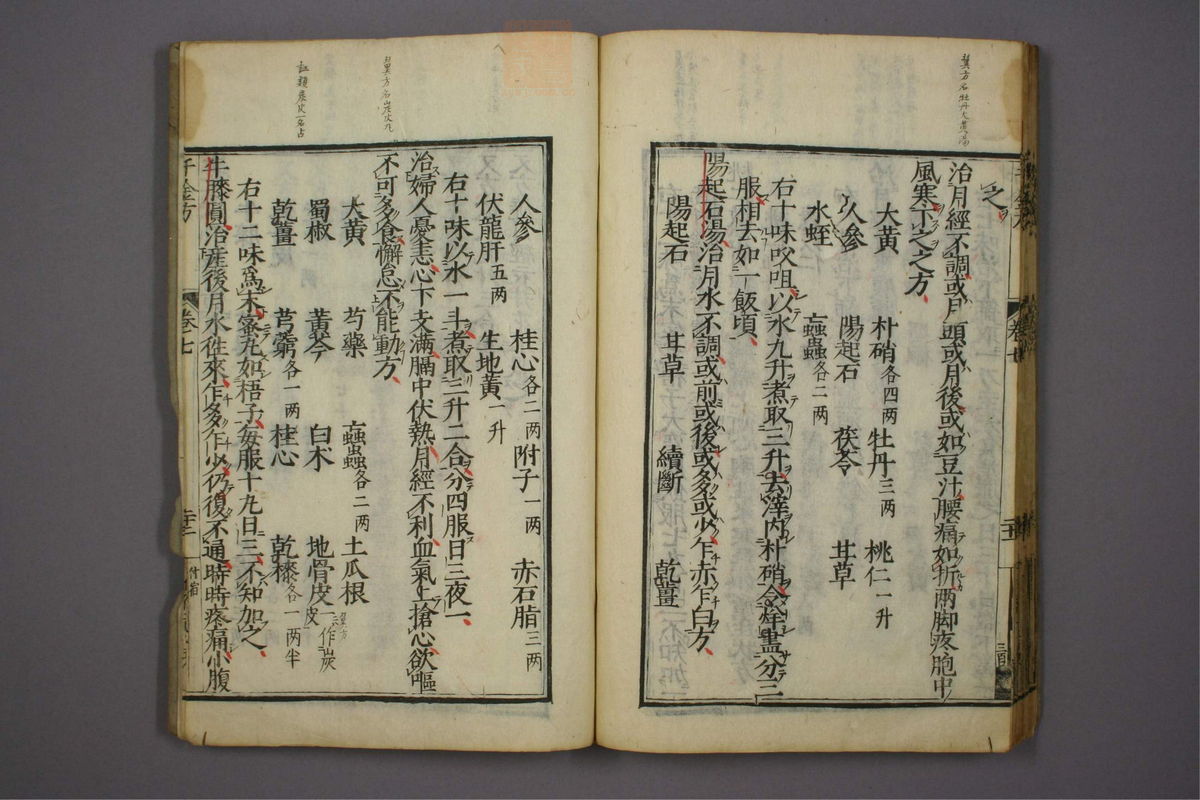 翼方名牡丹大黄湯
之
治月經不調或月頭或月後或如豆汁腰痛如折兩脚疼胞中
風寒下之之方
大黄 朴硝各四两 牡丹三两 桃仁一升
人參 陽起石 茯苓 甘草
水蛭 蝱蟲各二两
右十味㕮咀以水九升煮取三升去滓内朴硝令烊盡分三
服相去如一飯頃
陽起石湯治月水不調或前或後或多或少乍赤乍白方
陽起石 甘草 續斷 乾薑
人參 桂心各二两 附子一两 赤石脂三两
伏龍肝五两 生地黄一升
右十味以水一斗煮取三升二合分四服日三夜一
治婦人憂恚心下支滿膈中伏熱月經不利血氣上搶心欲嘔
不可多食懈怠不能動方
大黄 芍藥 蝱蟲各二两 土瓜根
蜀椒 黄芩 白术 地骨皮
乾薑 芎藭各一两 桂心 乾漆各一两半
右十二味爲末蜜丸如梧子每服十丸日三不知加之
牛膝圓治産後月水徃來乍多乍少仍復不通時時疼痛小腹
千金方
卷七